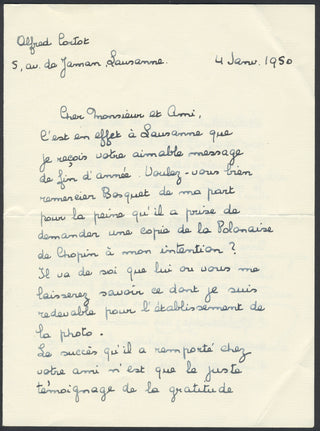 Alfred Cortot
5, av. de Jaman Lausanne.
4 Janv. 1950
Cher Monsieur et Ami,
C'est en effet à Lausanne que
je reçois votre aimable message
de fin d'année. Voulez-vous bien
remercier Bosquet de ma part
pour la peine qu'il a prise de
demander une copie de la Polonaise
de Chopin à mon intention ?
Il va de soi que lui ou vous me
laisserez savoir ce dont je suis
redevable pour l'établissement de
la photo.
Le succès qu'il a remporté chez
votre ami n'est que le juste
témoignage de la gratitude